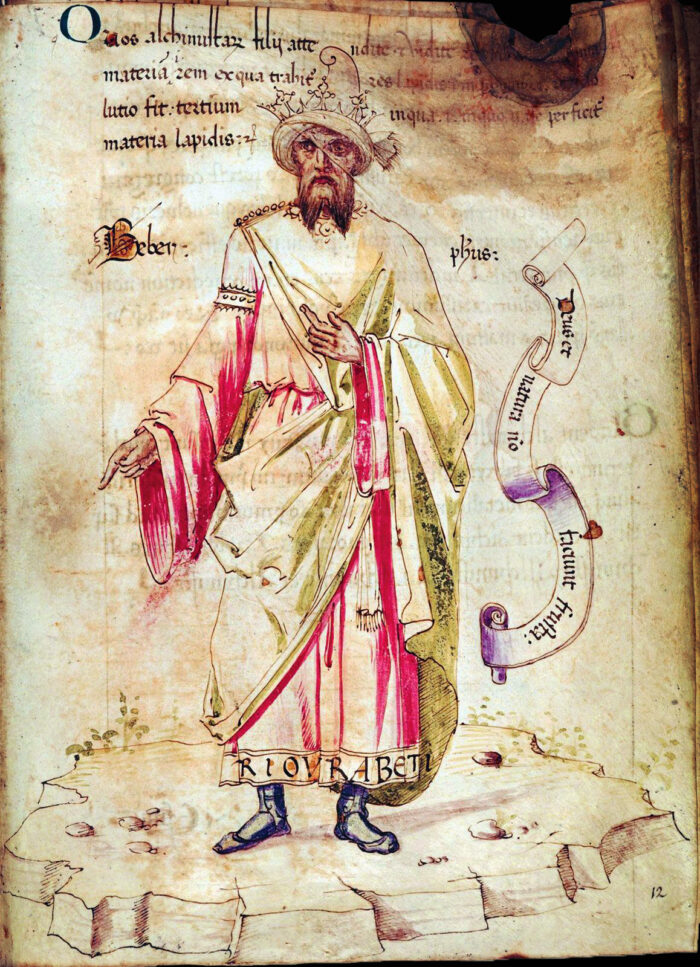 O Vos alchimistar filij atte ndite
materiā rem ex qua trahit̄ res lapidis
lutio fit: tertium inqua perficit
materia lapidis:
Geber: phūs:
Deus et
natura nō
faciunt frustra:
RIOVRABETI
12